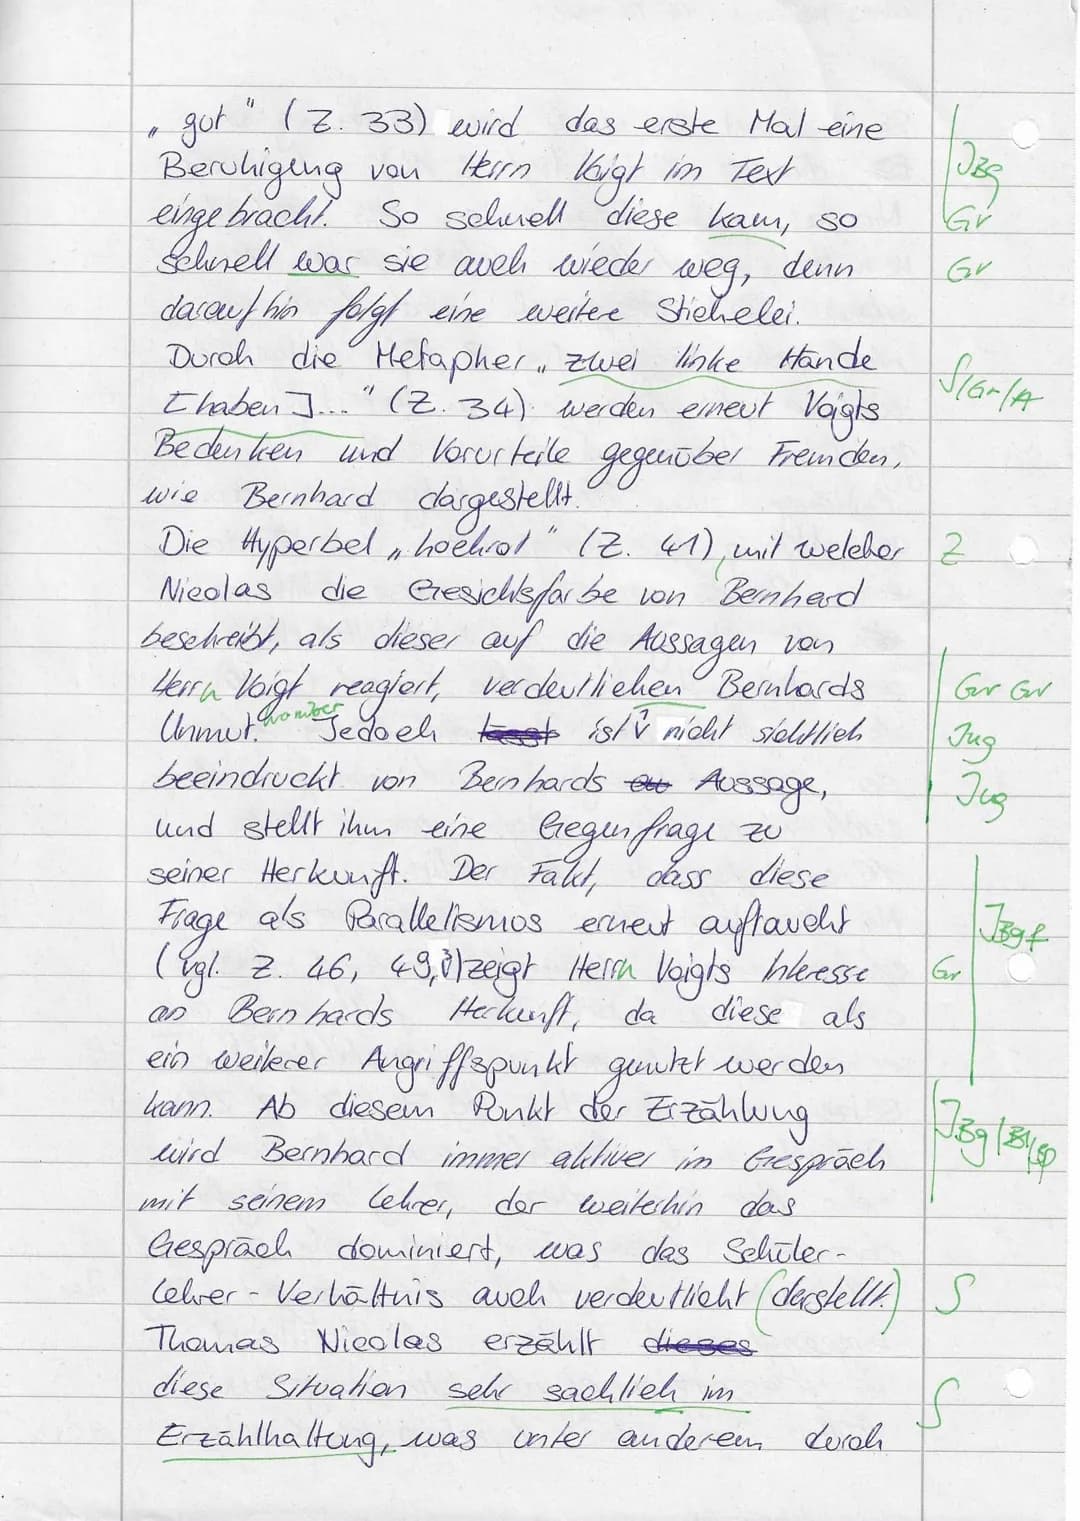 „gut" (Z. 33) wird das erste Mal eine
Beruhigung von Herrn Voigt im Text
eingebracht. So schnell diese kam, so
schnell war sie auch wieder weg, denn
daraufhin folgt eine weitere Stichelei.
Durch die Metapher „zwei linke Hände
[haben]..." (Z. 34) werden erneut Voigts
Bedenken und Vorurteile gegenüber Fremden,
wie Bernhard dargestellt.
Die Hyperbel „hochrot" (Z. 41), mit welcher
Nicolas die Gesichtsfarbe von Bernhard
beschreibt, als dieser auf die Aussagen von
Herrn Voigt reagiert, verdeutlichen Bernhards
Unmut. Jedoch ist nicht sichtlich
beeindruckt von Bernhards Aussage,
und stellt ihm eine Gegenfrage zu
seiner Herkunft. Der Fakt, dass diese
Frage als Parallelismos erneut auftaucht
(vgl. Z. 46, 49,) zeigt Herrn Voigts Interesse
an Bernhards Herkunft, da diese als
ein weiterer Angriffspunkt genutzt werden
kann. Ab diesem Punkt der Erzählung
wird Bernhard immer aktiver im Gespräch
mit seinem Lehrer, der weiterhin das
Gespräch dominiert, was das Schüler-
Lehrer-Verhältnis auch verdeutlicht (darstellt.)
Thomas Nicolas erzählt dieses
diese Situation sehr sachlich im
Erzählhaltung, was unter anderem durch
JBg
Gr
Gr
S/Gr/A
Z
Gr Gr
Jug
Jug
JBgf
Gr
JBg/
S
S